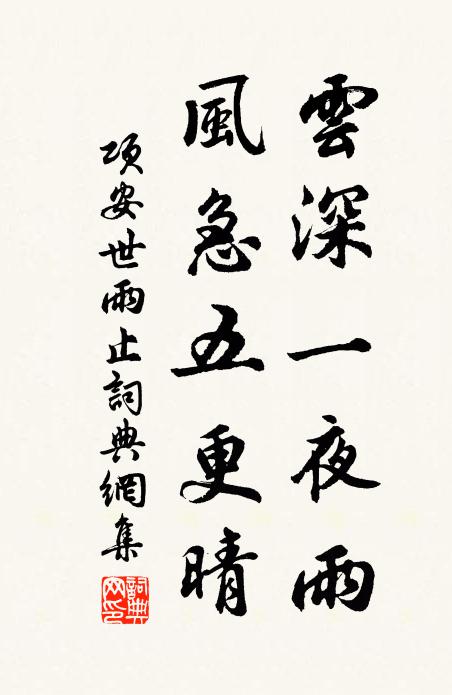 雲深一夜雨
風急五更晴
項安世雨止詞典網集
詞典網印